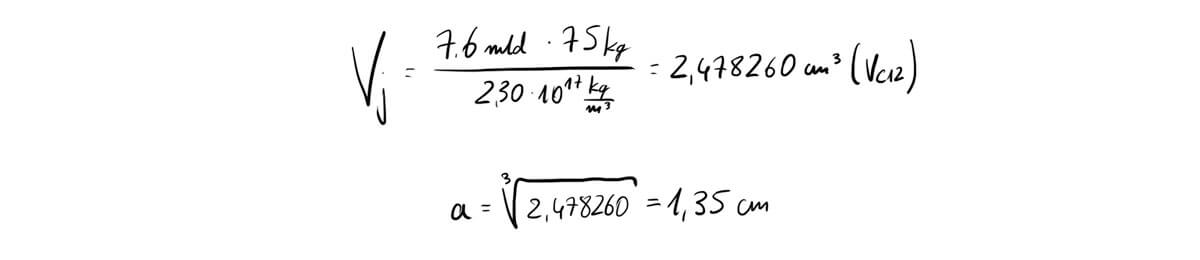 V_j = (7.6 mld · 75 kg) / (2,30 · 10^17 kg/m³) = 2,478260 cm³ (V_C12)
a = ³√2,478260 = 1,35 cm